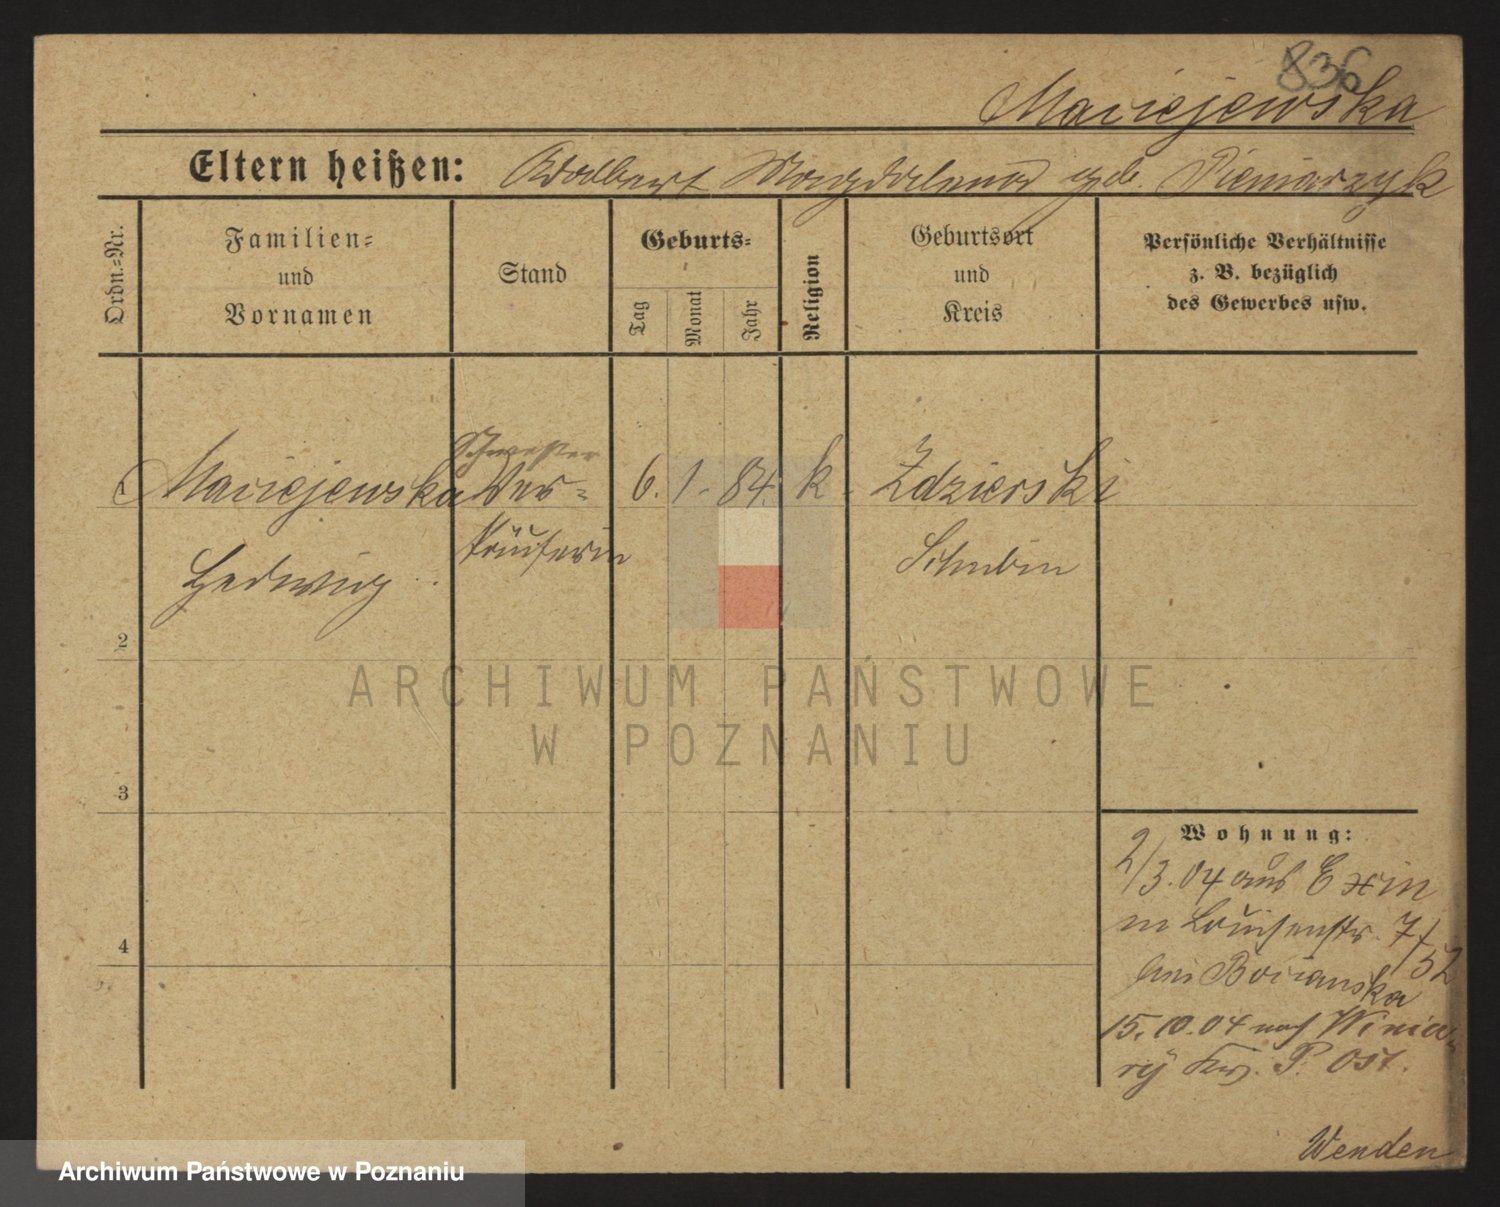 836
Maciejewska
Eltern heißen: Adalbert Magdalena geb. Pieniarzyk
Ordn.-Nr.
Familien-
und
Vornamen
Stand
Geburts-
Tag
Monat
Jahr
Religion
Geburtsort
und
Kreis
Persönliche Verhältnisse
z. B. bezüglich
des Gewerbes usw.
Schwester
Maciejewska Ver- 6. 1. 84. k. Zdzierski
käuferin
Hedwig Schubin
2
ARCHIWUM PAŃSTWOWE
W POZNANIU
3
Wohnung:
2/3.04 aus Exin
in Louisenstr. 7/52
bei Bocianska
4
15.10.04 nach Winia-
ry Krs. P. Ost.
Wenden
Archiwum Państwowe w Poznaniu